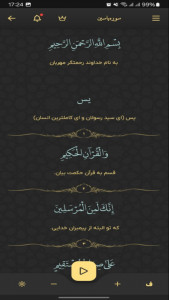 17:24
99%
سوره یاسین
بِسْمِ اللَّهِ الرَّحْمَنِ الرَّحِيمِ
به نام خداوند رحمتگر مهربان
يس
یس (ای سید رسولان و ای کاملترین انسان)
۱
وَالْقُرْآنِ الْحَكِيمِ
قسم به قرآن حکمت بیان.
۲
إِنَّكَ لَمِنَ الْمُرْسَلِينَ
که تو البته از پیمبران خدایی،
۳
عَلَىٰ صِرَاطٍ مُسْتَقِيمٍ
ف